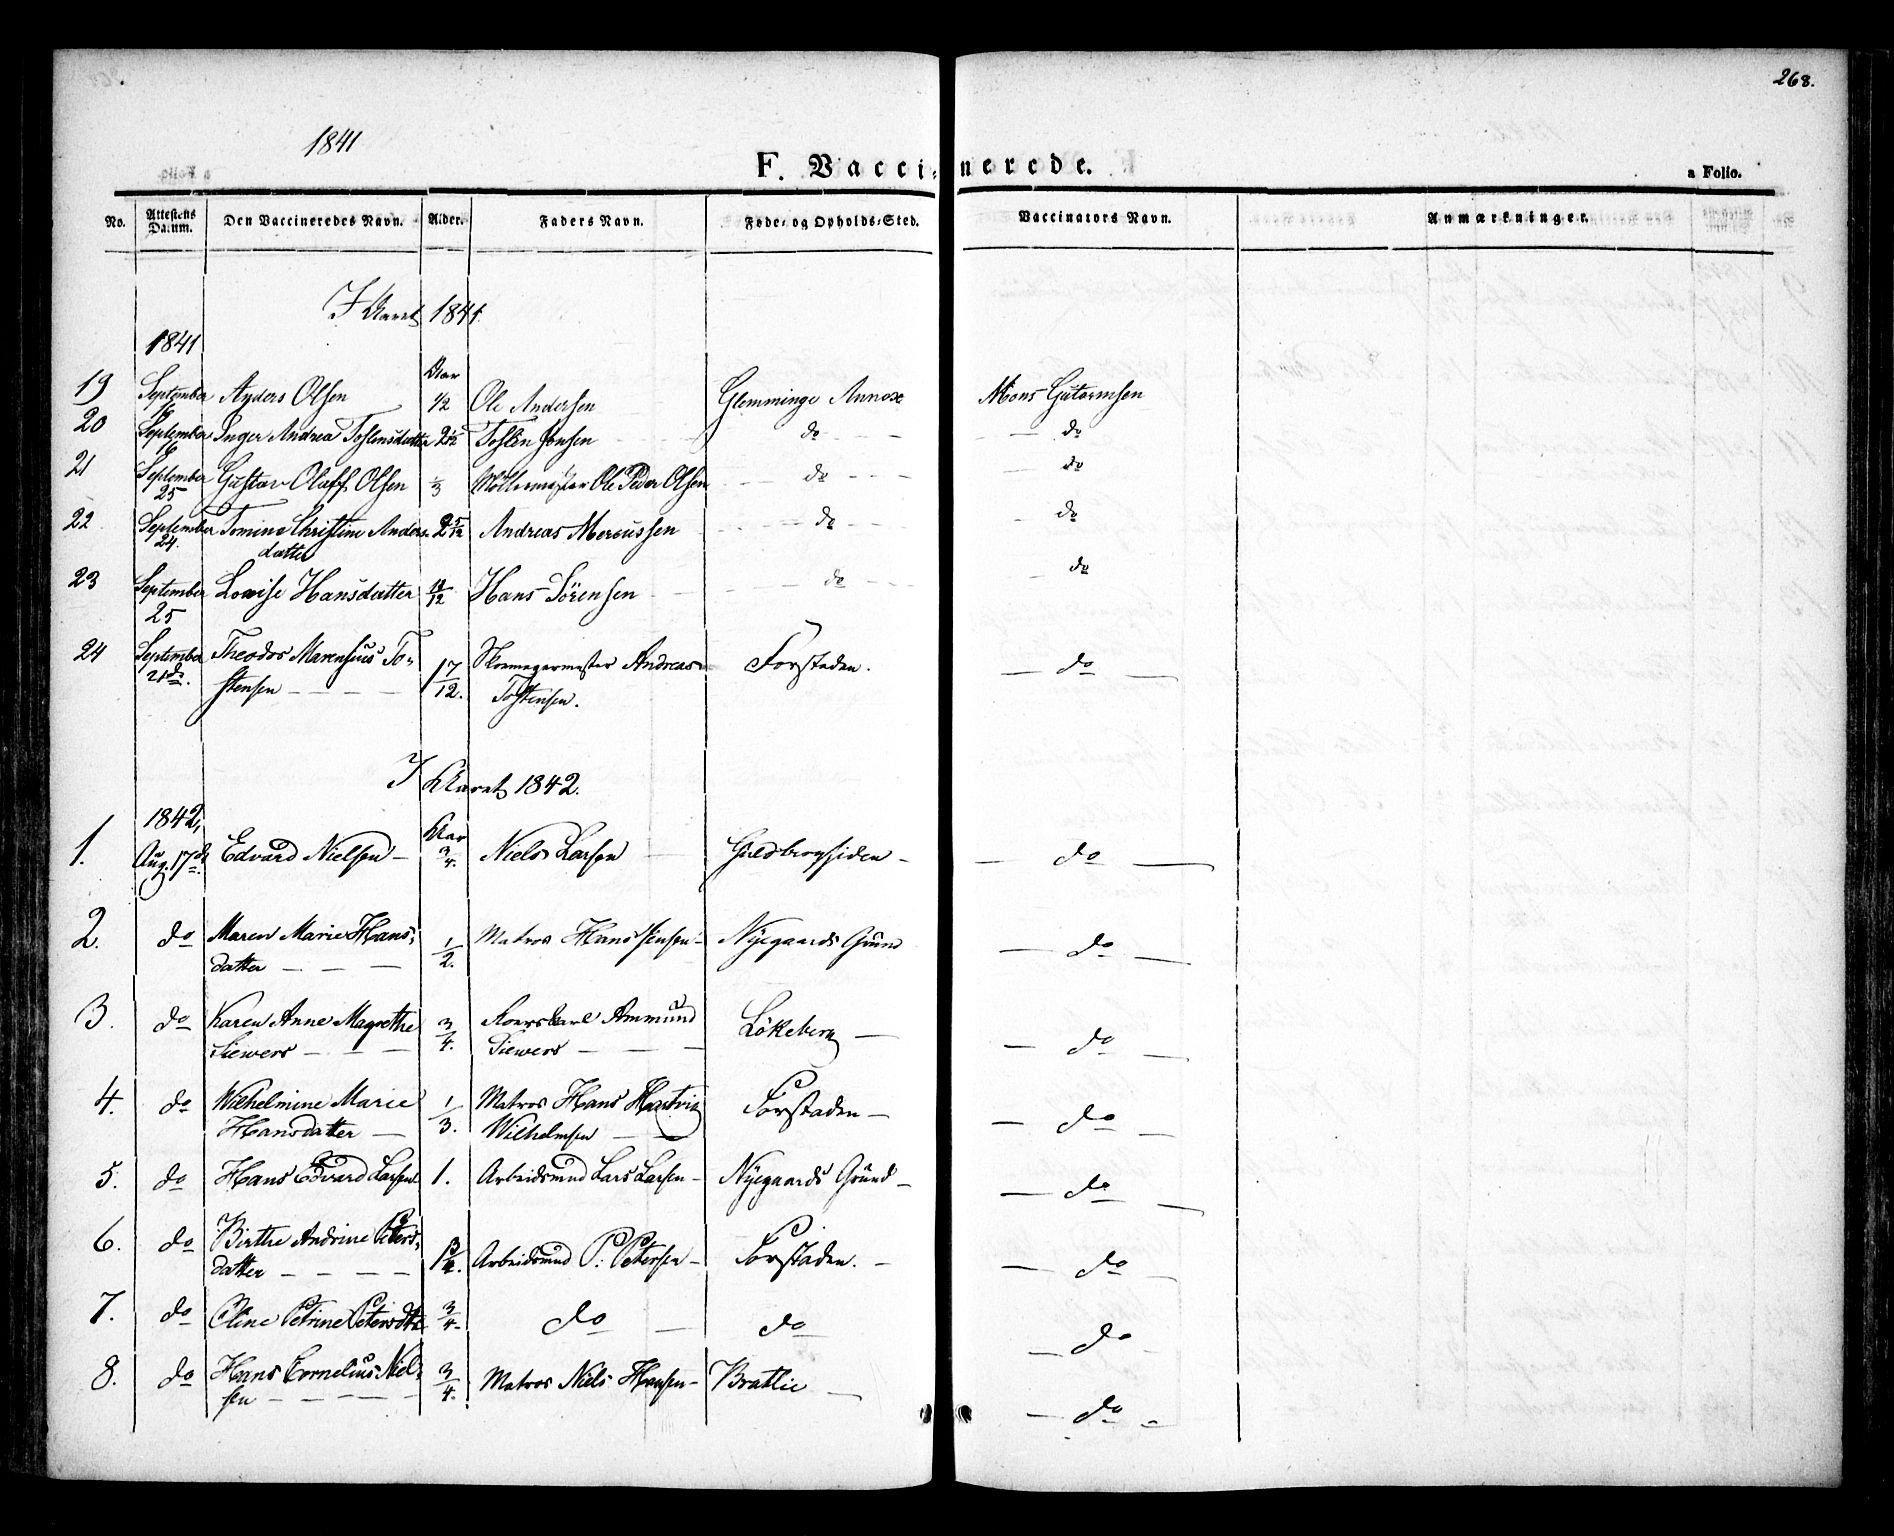 268.
1841
F. Vaccinerede.
a Folio.
No. Attestens Datum. Den Vaccineredes Navn. Alder. Faders Navn. Føde- og Opholds-Sted. Vaccinators Navn. Anmærkninger.
I Aaret 1841.
1841
Aar
19 September 16 Anders Olsen 1/2 Ole Andersen Glemminge Annex Mons Gutormsen
20 September 16 Inger Andrea Toslensdatter Toslen Jensen do do
21 September 25 Gustav Olaff Olsen 1/3 Møllermester Ole Peder Olsen do do
22 September 24. Tomine Christine Anders- 2 5/12 Andreas Mercussen do do
datter
23 September 25 Lovise Hansdatter 11/12 Hans Sørensen do do
24 September 21de. Theodor Marensius To- 1 7/12. Skomagermester Andreas Forstaden. do
stensen Tostensen.
I Aaret 1842.
1842, Aar
1. Aug. 17de. Edvard Nielsen 3/4. Niels Larsen Guldbergsiden do
2. do Maren Marie Hans- 1/2. Matros Hans Jensen Nyegaards Grund do
datter
3. do Karen Anne Magrethe 3/4. Ammund Løkeberg do
Siewers Siewers
4. do Wilhelmine Marie 1/3. Matros Hans Hartvig Forstaden do
Hansdatter Wilhelmsen
5. do Hans Edvard Larsen 1. Arbeidsmd Lars Larsen Nyegaards Grund do
6. do Birthe Andrine Peters- Arbeidsmd P. Petersen Forstaden. do
datter
7. do Oline Petrine Petersdtr 3/4 do do do
8. do Hans Cornelius Niel- 3/4. Matros Niels Hansen Bratlie do
sen